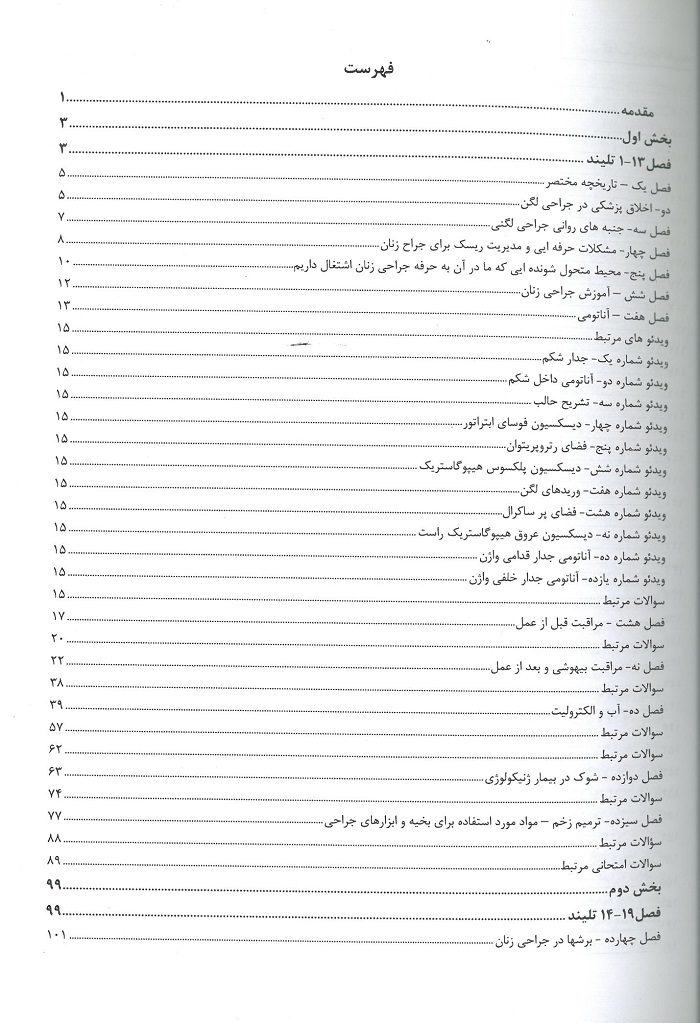 فهرست
مقدمه ۱
بخش اول ۳
فصل ۱۳-۱ تلیند ۳
فصل یک – تاریخچه مختصر ۵
دو- اخلاق پزشکی در جراحی لگن ۵
فصل سه- جنبه های روانی جراحی لگنی ۷
فصل چهار- مشکلات حرفه ایی و مدیریت ریسک برای جراح زنان ۸
فصل پنج- محیط متحول شونده ایی که ما در آن به حرفه جراحی زنان اشتغال داریم ۱۰
فصل شش – آموزش جراحی زنان ۱۲
فصل هفت – آناتومی ۱۳
ویدئو های مرتبط ۱۵
ویدئو شماره یک- جدار شکم ۱۵
ویدئو شماره دو- آناتومی داخل شکم ۱۵
ویدئو شماره سه- تشریح حالب ۱۵
ویدئو شماره چهار- دیسکسیون فوسای ابتراتور ۱۵
ویدئو شماره پنج- فضای رتروپریتوان ۱۵
ویدئو شماره شش- دیسکسیون پلکسوس هیپوگاستریک ۱۵
ویدئو شماره هفت- وریدهای لگن ۱۵
ویدئو شماره هشت- فضای پر ساکرال ۱۵
ویدئو شماره نه- دیسکسیون عروق هیپوگاستریک راست ۱۵
ویدئو شماره ده- آناتومی جدار قدامی واژن ۱۵
ویدئو شماره یازده- آناتومی جدار خلفی واژن ۱۵
سوالات مرتبط ۱۵
فصل هشت - مراقبت قبل از عمل ۱۷
سوالات مرتبط ۲۰
فصل نه- مراقبت بیهوشی و بعد از عمل ۲۲
سوالات مرتبط ۳۸
فصل ده- آب و الکترولیت ۳۹
سوالات مرتبط ۵۷
سوالات مرتبط ۶۲
فصل دوازده - شوک در بیمار ژنیکولوژی ۶۳
سوالات مرتبط ۷۴
فصل سیزده- ترمیم زخم – مواد مورد استفاده برای بخیه و ابزارهای جراحی ۷۷
سؤالات مرتبط ۸۸
سوالات امتحانی مرتبط ۸۹
بخش دوم ۹۹
فصل ۱۹-۱۴ تلیند ۹۹
فصل چهارده - برشها در جراحی زنان ۱۰۱